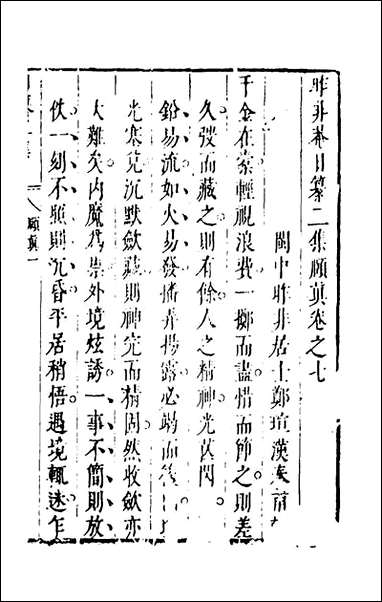 昨非菴日纂二集頤真卷之七
閩中昨非居士鄭瑄漢奉
千金在橐輕視浪費一擲而盡惜而節之則差
久發而藏之則有餘人之精神光茵閃
鉛易流如火易發播弄揚露必竭而後
光塞兌沉默斂藏則神完而精固然收斂亦
大難矣内魔爲祟外境炫誘一事不簡則放
佚一刻不頤則沉昏平居稍悟遇境輒迷乍
頤真一